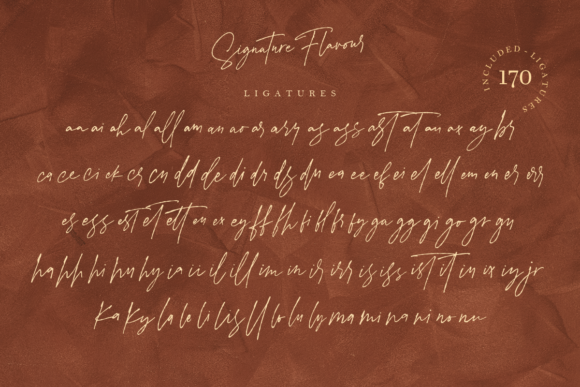 Signature Flavour
INCLUDED - LIGATURES
170
LIGATURES
aa ai ah al all am an ao ar arr as ass ast at au ax ay br
ca ce ci ck cr cn dd de di dr ds du ea ee ef ei el ell em en er err
es ess est et ett eu ex ey ff fh fi fl fr fy ga gg gi go gr gu
ha hh hi hu hy ia ii il ill im in ir irr is iss ist it iu ix iy jr
ka ky la le li lis ll lo lu ly ma mi na ni no nu